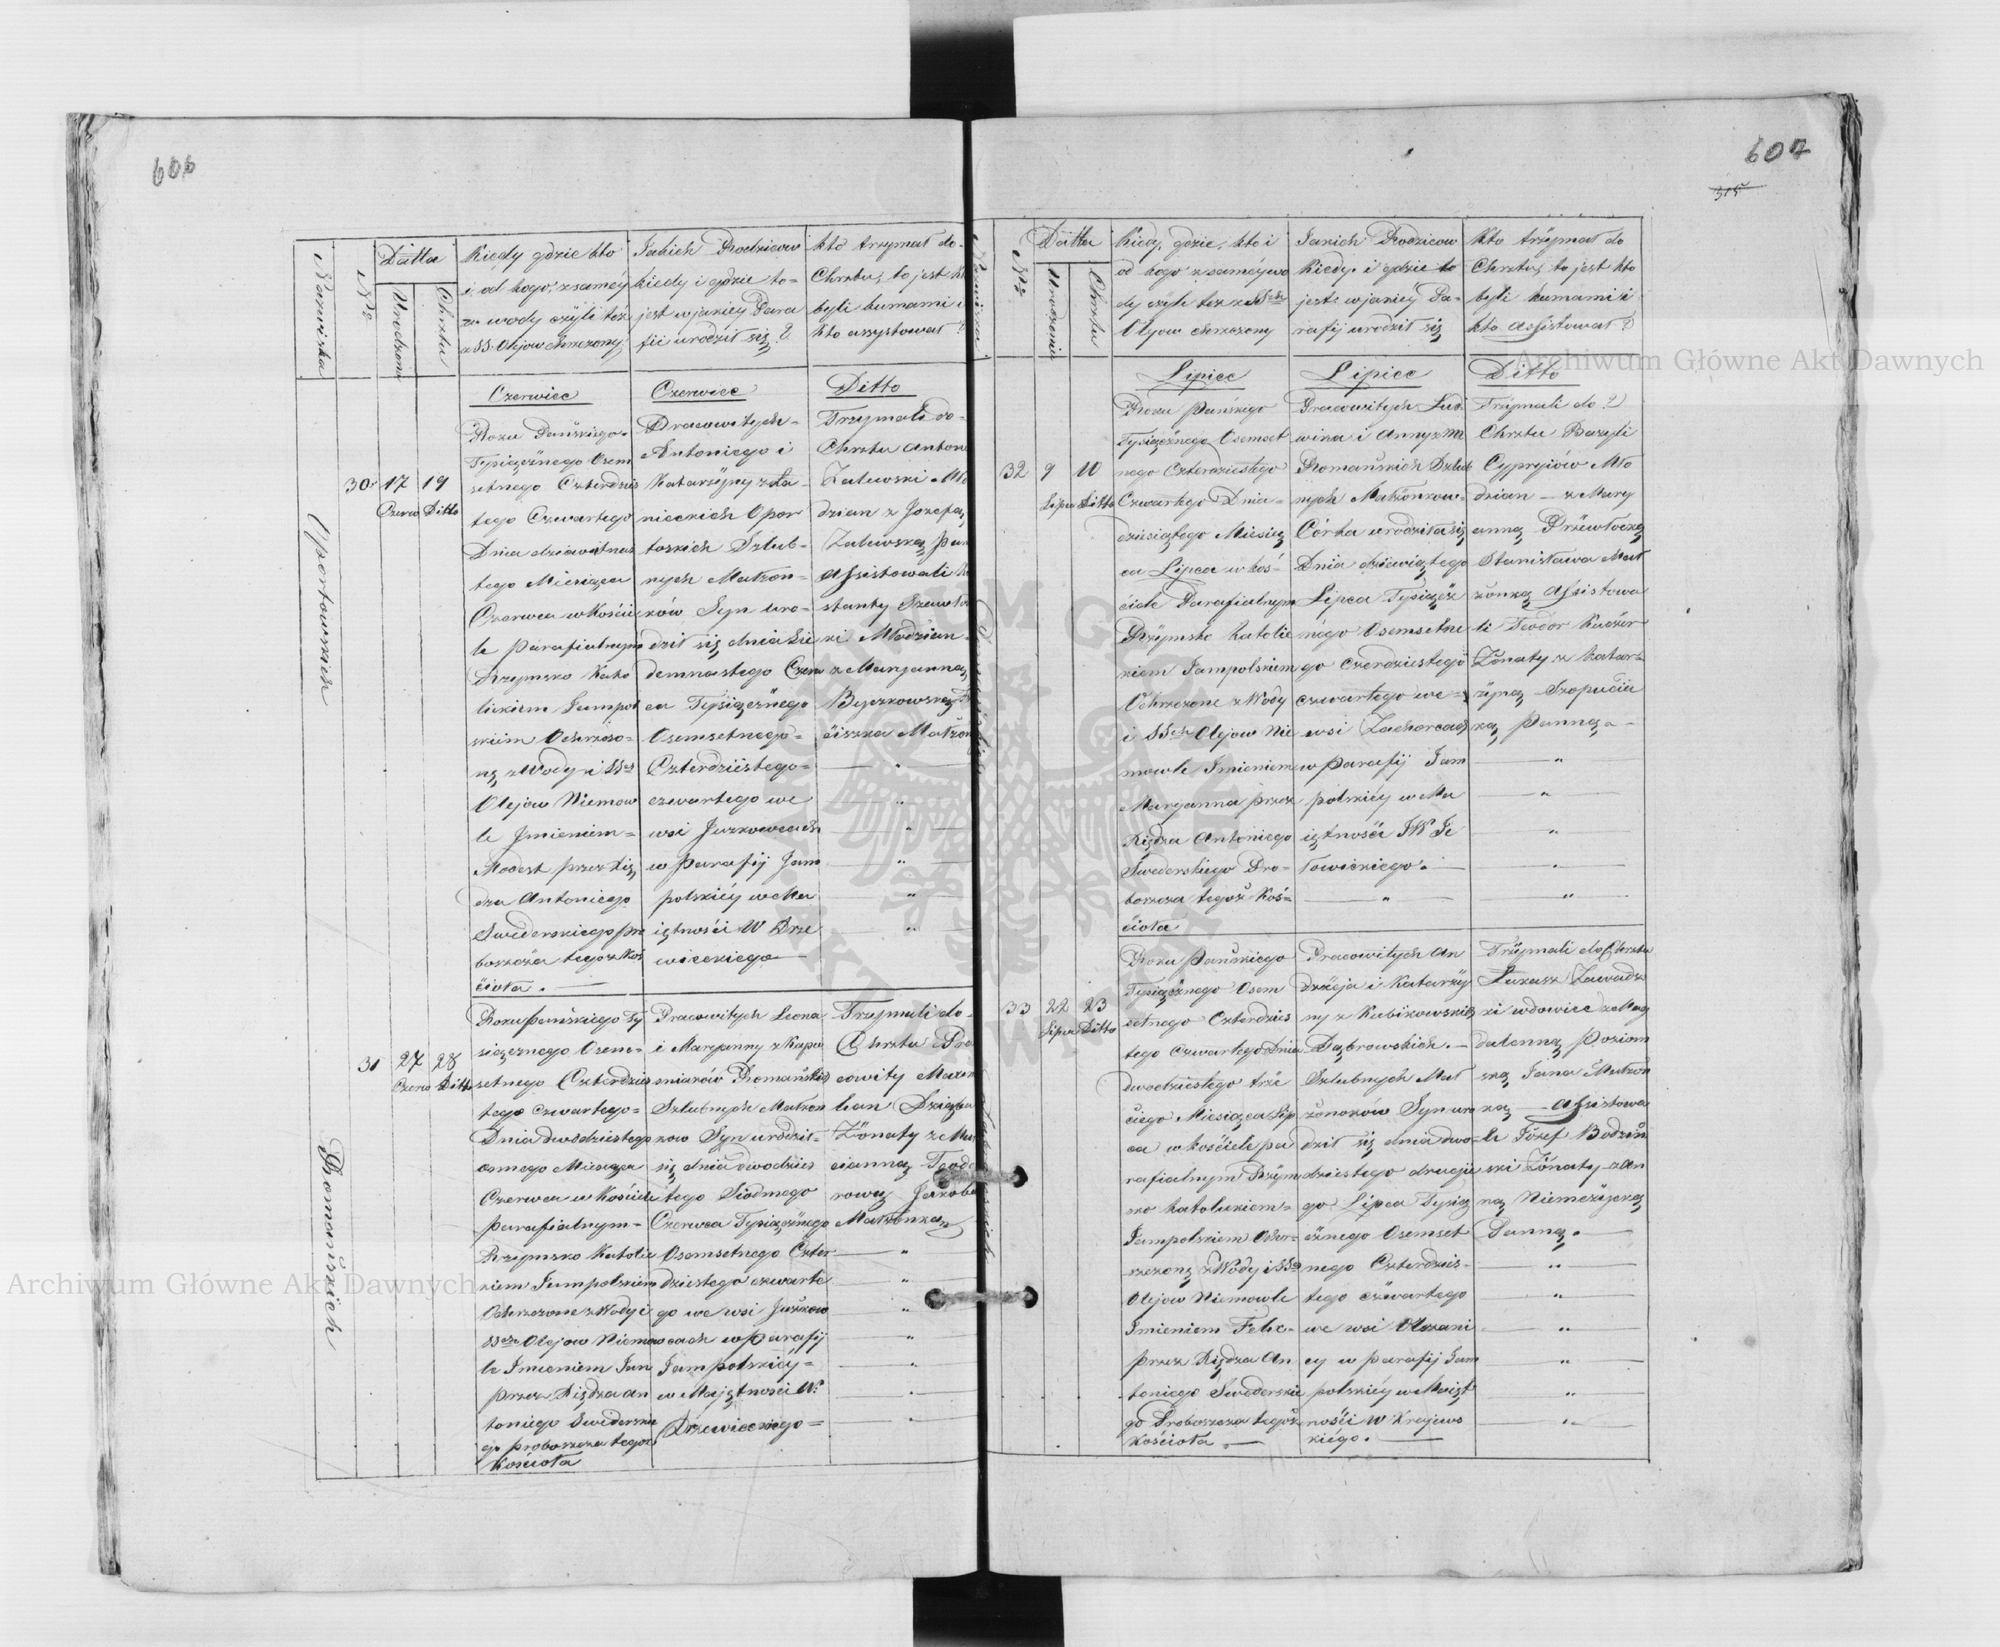 606
Nazwiska
Nro
Datta
Urodzenia
Chrztu
Kiedy gdzie kto
i, od kogo, z saméy
z wody czyli też
z SS. Olejow chrzczony
Jakich Rodzicow
kiedy i gdzie to-
jest w jakiey Para
fii urodził się ?
kto trzymał do-
Chrztu, to jest kto
byli kumami i
kto assystował ?
Czerwiec
Czerwiec
Ditto
Oportowskich
30.
17
Czerw
19
Ditto
Roku Pańskiego-
Tysiącznego Osem
setnego Czterdzies
tego Czwartego
Dnia dziewiętnas
tego Miesiąca
Czerwca w Kościé
le Parafialnym
Rzymsko Kato
lickiem Jampol
skiém Ochrzczo-
ną z Wody i SSch
Olejow Niemow
le Jmieniem=
Modest przez Xię
dza Antoniego
Swederskiego Pro
boszcza tegoż Koś
cioła. —
Pracowitych-
Antoniego i
Katarzÿny z Ła-
nieckich Opor
towskich Szlub-
nych Małżon-
ków Syn uro-
dził się dnia Sie
demnastego Czerw
ca Tysiącznego
Osemsetnego=
Czterdziestego=
czwartego we
wsi Juszkowcach
w Parafij Jam
polskiéy w Ma
iętności W Drze
wieckiego —
Trzymali do-
Chrztu Antoni
Zalewski Mło
dzian z Jozefą
Zalewską Pan
Assistowali
stanty Szawło
ki Młodzian-
z Maryanną
Byczkowską
ciszka Małżon
Romańskich
31
27
Czerw
28
Ditto
Roku Pańskiego Ty
siącznego Osem-
setnego Czterdzies
tego czwartego=
Dnia dwudziestego
osmego Miesiąca
Czerwca w Kościele
parafialnym=
Rzÿmsko Katolic
kiem Jampolskiem
Ochrzczone z Wody i
SSch Olejow Niemow
le Imieniem Jan
przez Xiędza An
toniego Swederskie
go proboszcza tegoż
Kościoła
Pracowitych Leona
i Maryanny z Kapu
sniarów Romańskich
Szlubnych Małżon
kow Syn urodził=
się dnia dwudzies
tego Siodmego
Czerwca Tysiącznego
Osemsetnego Czter
dziestego czwarte
go we wsi Juszkow
cach w Parafij
Jampolskiéy=
w Majętności W.
Drzewieckiego=
Trzymali do-
Chrztu Pra
cowity Maxim
lian Dziąba
Żonaty z Ma
cianną Teodo
rową Jakoba
Małżonką
607
315
Nazwiska
Nro
Datta
Urodzenia
Chrztu
Kiedy, gdzie, kto i
od kogo z saméy wo
dy czyli też z SSch
Olejow chrzczony
Jakich Rodzicow
Kiedy i gdzie to
jest w jakiey Pa-
rafij urodził się
Kto trzÿmał do
Chrztu, to jest kto
byli kumami i
kto Assistował ?
Lipiec
Lipiec
Ditto
32
9
Lipca
10
Ditto
Roku Pańskiego
Tysiącznego Osemset
nego Czterdziestego
Czwartego Dnia=
dziesiątego Miesią
ca Lipca w Koś-
ciele Parafialnym
Rzÿmsko Katolic
kiem Jampolskiem
Ochrzczone z Wody
i SSch Olejow Nie
mowle Imieniem
Maryanna przez
Xiędza Antoniego
Swederskiego Pro-
boszcza tegoż Koś-
cioła
Pracowitych Lud
wika i Anny z
Romańskich Szlub
nych Małżonkow-
Córka urodziła się
Dnia dziewiątego
Lipca Tysiącz
nego Osemsetne
go Czterdziestego
czwartego we=
wsi Zachorcach
w Parafij Jam
polskiey w Ma
iętności JW Je
łowickiego. —
Trzÿmali do
Chrztu Bazyli
Mło
dzian — z Mary
anną
Stanisława Mał
żonką Assistowa
li Teodór
Żonaty z Katar-
zÿną
ką Panną. —
33
22
Lipca
23
Ditto
Roku Pańskiego
Tysiącznego Osem
setnego Czterdzies
tego Czwartego Dnia
dwudziestego trze
ciego Miesiąca Lip
ca w Kościele pa
rafialnym Rzÿm
sko Katolickiem=
Jampolskiem Ochr=
zczoną z Wody i SSch
Olejow Niemowle
Imieniem Felix-
przez Xiędza An
toniego Swederskie
go Proboszcza tegoż
Kościoła —
Pracowitych An
drzéja i Katarzÿ
ny z Kubikowskich
Dąbrowskich.—
Szlubnych Mał
żonków Syn uro
dził się dnia dwu-
dziestego drugie
go Lipca Tysią
cznego Osemset
nego Czterdzies-
tego czwartego
we wsi
cy w parafij Jam
polskiéy w Maięt
ności W Krajews
kiégo. —
Trzÿmali do Chrztu
Łukasz Zawadz
ki wdowiec z Mag
daleną Poziom
ską Jana Małżon
ką — Assistowa
li Józef Bodziń
ski Żonaty z An
ną
Panną. —
Archiwum Główne Akt Dawnych
Archiwum Główne Akt Dawnych